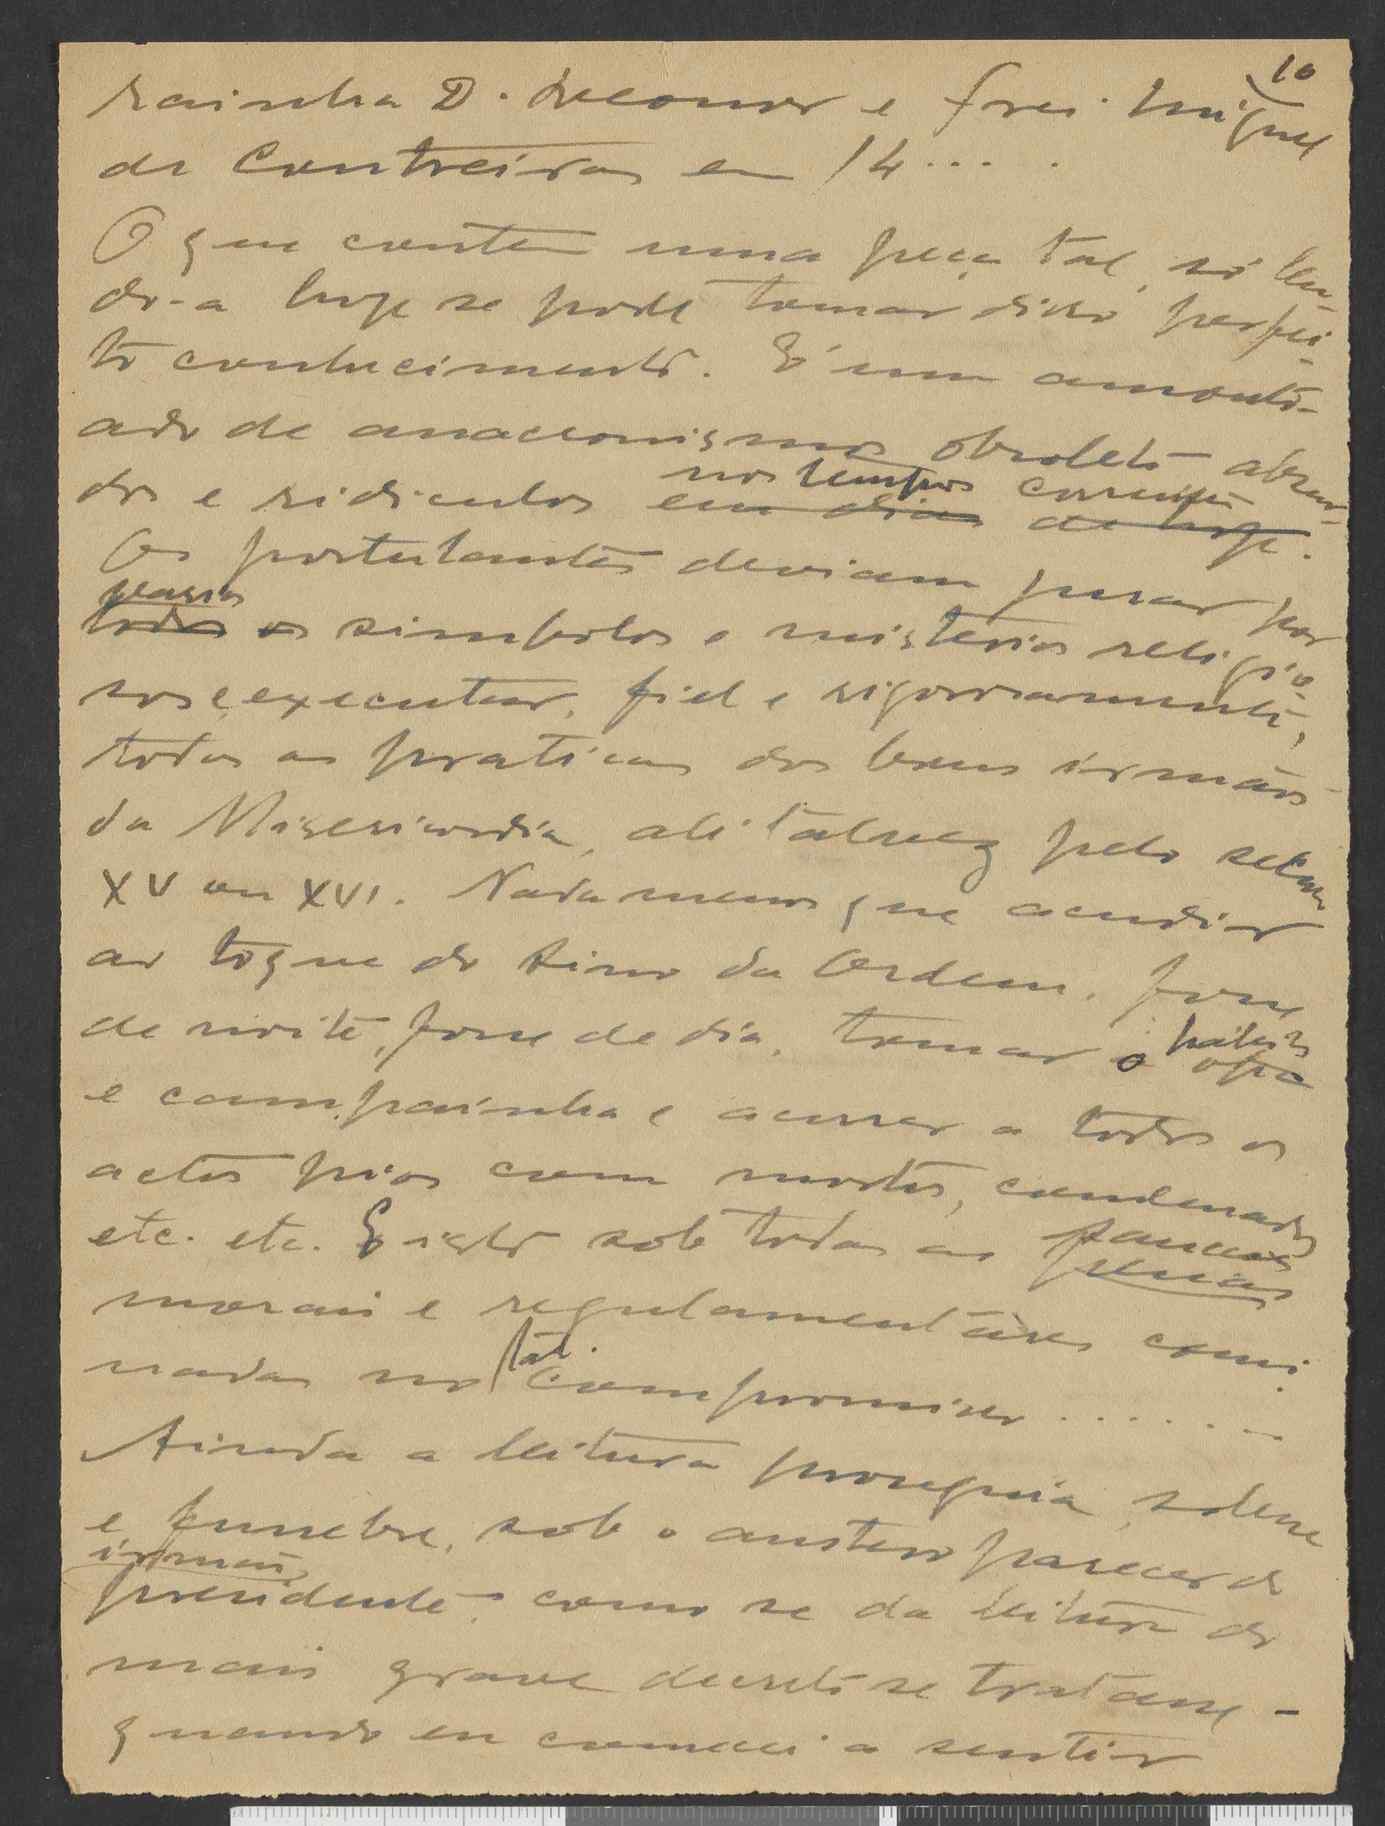 10
rainha D. Leonor e frei Miguel
de Contreiras em 14....
O que contem uma peça tal, só len-
do-a hoje se pode tomar disso perfei-
to conhecimento. É um amonto-
ado de anacronismos obsoletos absur-
nos tempos correntes
dos e ridiculos em dias de hoje.
Os postulantes deviam jurar por
varios
todos os simbolos e misterios religio-
sos e executar, fiel e rigorosamente,
todas as praticas dos bons irmãos
da Misericordia, ali talvez pelo seculo
XV ou XVI. Nada menos que acudir
ao toque do sino da Ordem, fosse
de noite, fosse de dia, tomar o
opa
e campainha e acorrer a todos os
actos pios com mortos, condenados
etc. etc. E isto sob todas as
penas
morais e regulamentares comi-
tal
nadas no compromisso.......
Ainda a leitura proseguia, solene
e funebre, sob o austero parecer do
irmão
presidente, como se da leitura do
mais grave decreto se tratasse -
quando eu comecei a sentir